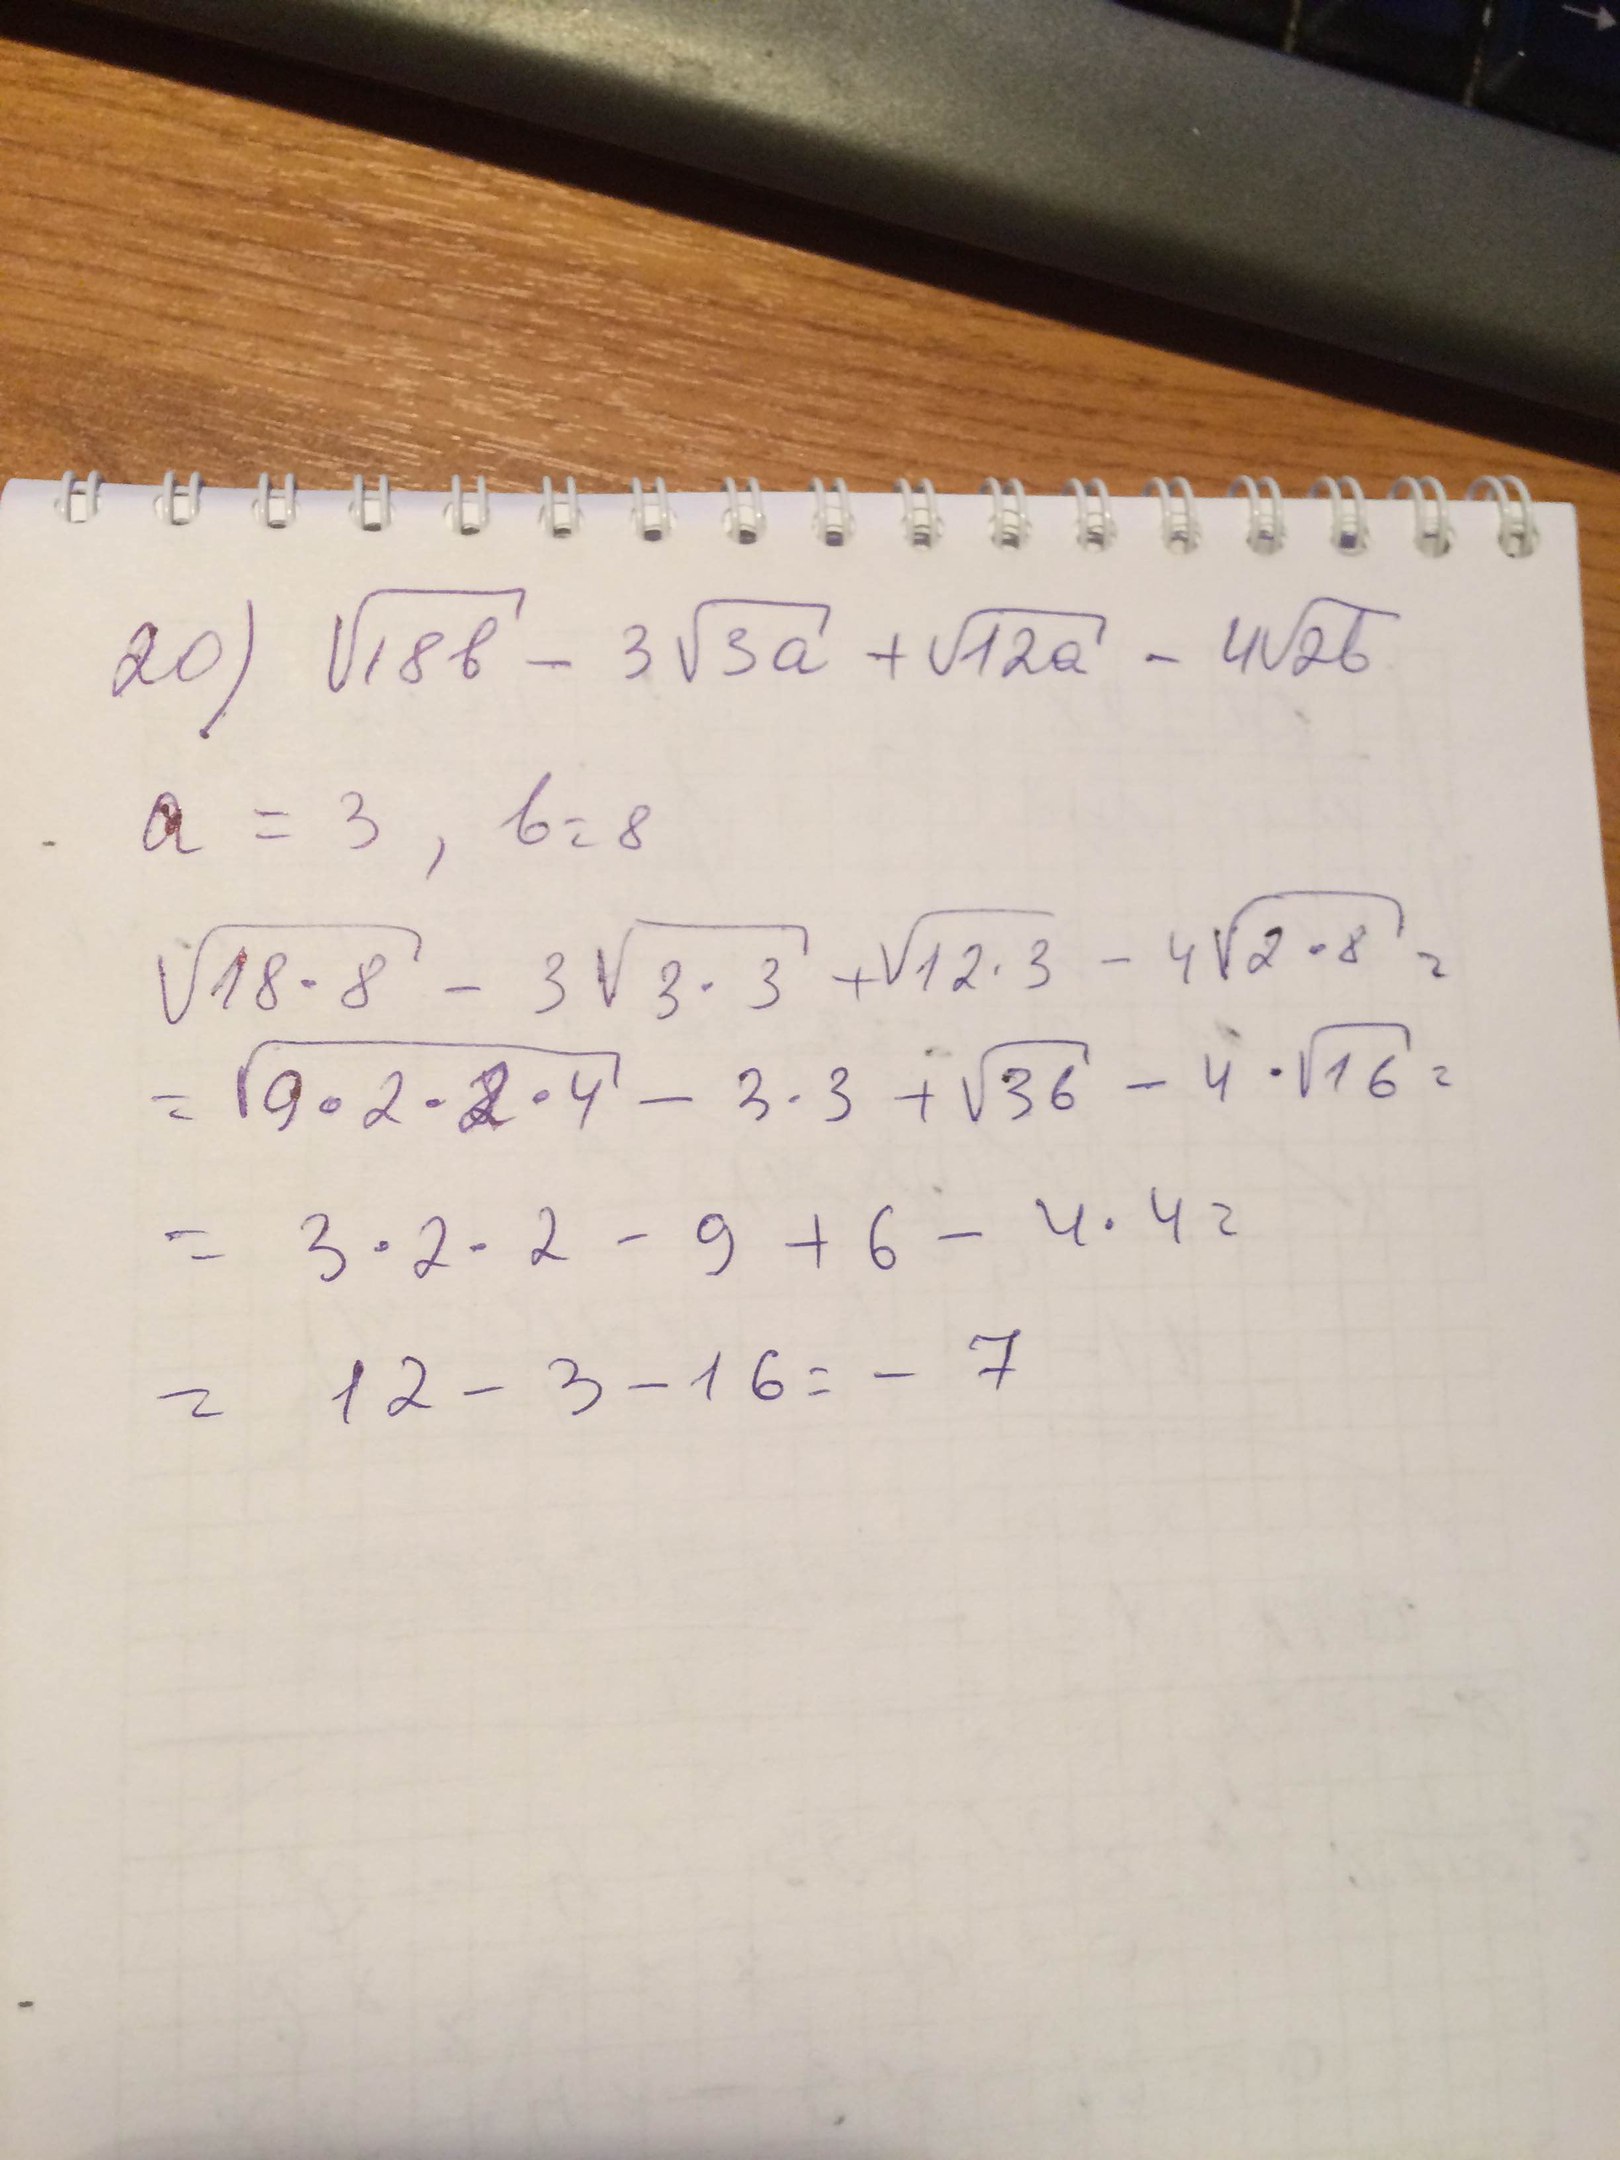 20) √18b - 3√3a + √12a - 4√2b
a = 3, b = 8
√18·8 - 3√3·3 + √12·3 - 4√2·8 =
= √9·2·2·4 - 3·3 + √36 - 4·√16 =
= 3·2·2 - 9 + 6 - 4·4 =
= 12 - 3 - 16 = - 7